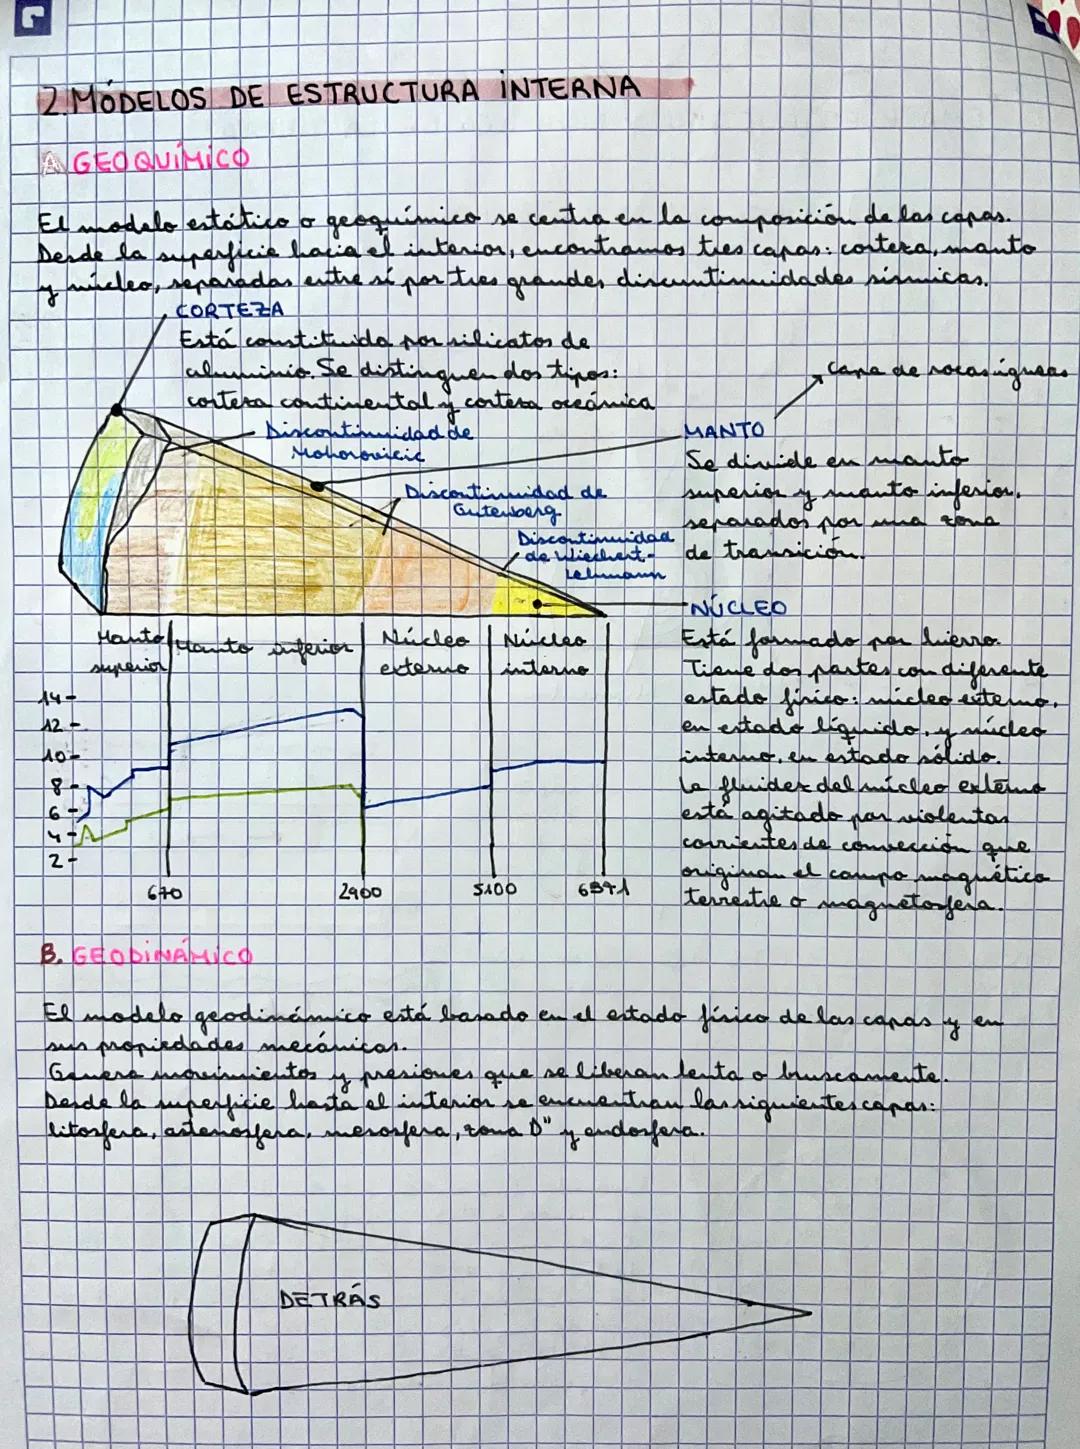 2.MÓDELOS DE ESTRUCTURA INTERNA
A GEOQUÍMICO
El modelo estático o geoquímico se centra en la composición de las capas.
Desde la superficie hacia el interior, encontramos tres capas: corteza, manto
y núcleo, separadas entre sí por tres grandes discuntinuidades sísmicas.
CORTEZA
Está constituida por silicatos de
aluminio. Se distinguen dos tipos:
corteza continental y corteza oceánica
Capa de rocas ígneas
Discontinuidad de
Mohorovicic
MANTO
Se divide en manto
superior y manto inferior,
separados por una zona
de transición.
Discontinuidad de
Gutenberg
Discontinuidad
de Wiechert-
Lehmann
NÚCLEO
Está formado por hierro.
Tiene dos partes con diferente
estado físico: núcleo externo,
en estado líquido, y núcleo
interno, en estado sólido.
La fluidez del núcleo externo
está agitado por violentas
corrientes de convección que
originan el campo magnético
terrestre o magnetosfera.
Manto
superior
Manto inferior
Núcleo
externo
Núcleo
interno
14-
12-
10-
8-
6-
4-
2-
670
2900
5100
6371
B. GEODINÁMICO
El modelo geodinámico está basado en el estado físico de las capas y en
sus propiedades mecánicas.
Genera movimientos y presiones que se liberan lenta o bruscamente.
Desde la superficie hasta el interior se encuentran las siguientes capas:
litosfera, astenosfera, mesosfera, zona D" y endosfera.
DETRÁS